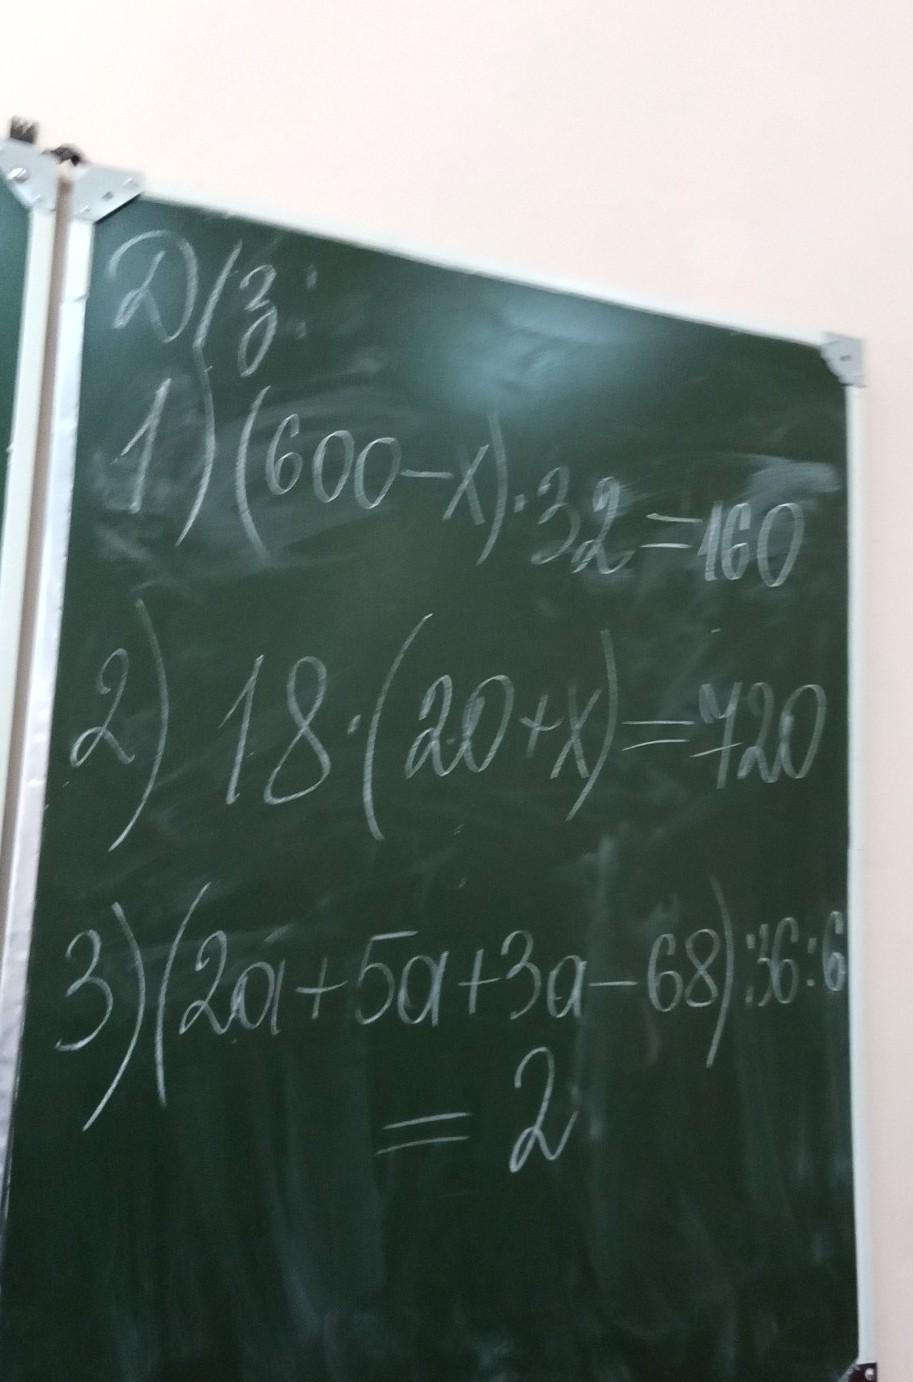 Д/з:
1) (600-x)·32=160
2) 18·(20+x)=720
3) (2a+5a+3a-68):36:6
= 2